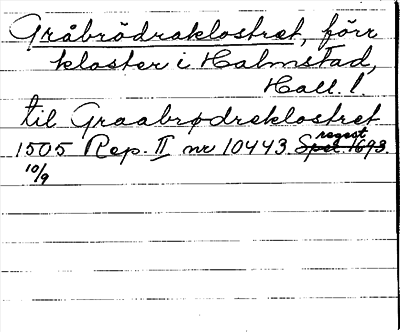 Gråbrödraklostret, förr
kloster i Halmstad,
Hall. l.
til Graabrødreklostret
1505 Rep. II nr 10443 regest
10/9